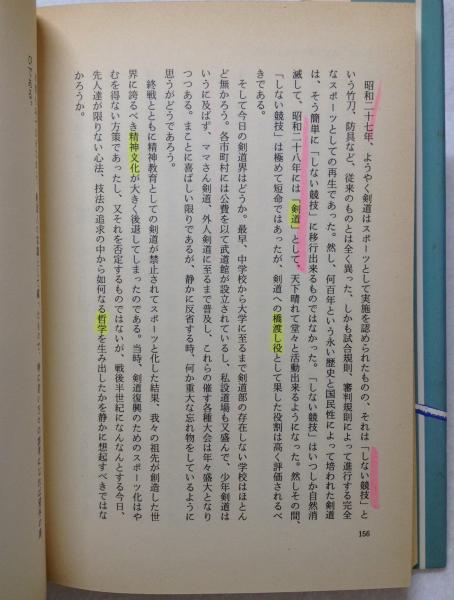 昭和二十七年、ようやく剣道はスポーツとして実施を認められたものの、それは「しない競技」と
いう竹刀、防具など、従来のものとは全く異った、しかも試合規則、審判規則によって進行する完全
なスポーツとしての再生であった。然し、何百年という永い歴史と国民性によって培われた剣道
は、そう簡単に「しない競技」に移行出来るものではなかった。「しない競技」はいつしか自然消
滅して、昭和二十八年には「剣道」として、天下晴れて堂々と活動出来るようになった。然しその間、
「しない競技」は極めて短命ではあったが、剣道への橋渡し役として果した役割は高く評価されるべ
きである。
そして今日の剣道界はどうか。最早、中学校から大学に至るまで剣道部の存在しない学校はほとん
ど無かろう。各市町村には公費を以て武道館が設立されているし、私設道場も又盛んで、少年剣道は
いうに及ばず、ママさん剣道、外人剣道に至るまで普及し、これらの催す各種大会は年々盛大となり
つつある。まことに喜ばしい限りであるが、静かに反省する時、何か重大な忘れ物をしているように
思うがどうであろう。
終戦とともに精神教育としての剣道が禁止されてスポーツと化した結果、我々の祖先が創造した世
界に誇るべき精神文化が大きく後退してしまったのである。当時、剣道復興のためのスポーツ化はや
むを得ない方策であったし、又それを否定するものではないが、戦後半世紀になんなんとする今日、
先人達が限りない心法、技法の追求の中から如何なる哲学を生み出したかを静かに想起すべきではな
かろうか。
156